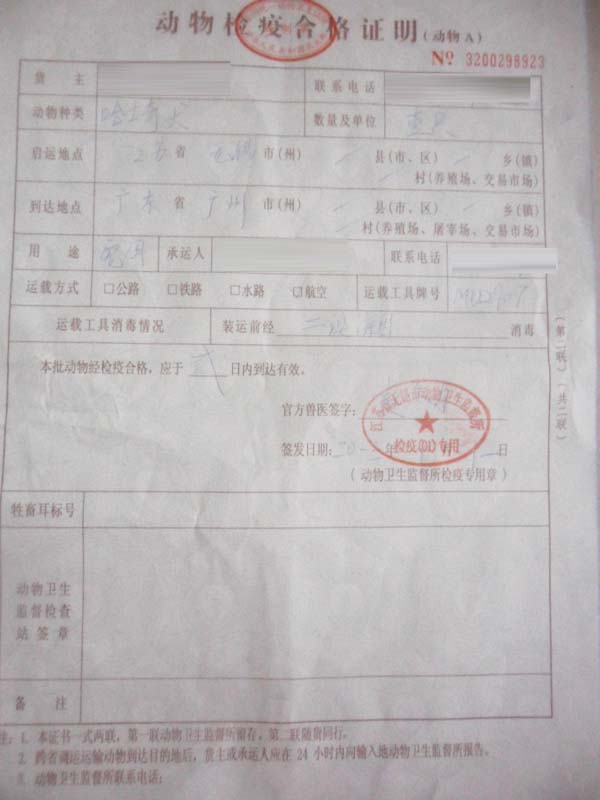 动物检疫合格证明(动物A)
№ 3200298923
货 主 联系电话
动物种类 哈士奇犬 数量及单位 壹只
启运地点 江苏省 无锡市(州) 县(市、区) 乡(镇)
村(养殖场、交易市场)
到达地点 广东省 广州市(州) 县(市、区) 乡(镇)
村(养殖场、屠宰场、交易市场)
用 途 承运人 联系电话
运载方式 □公路 □铁路 □水路 □航空 运载工具牌号
运载工具消毒情况 装运前经 消毒
本批动物经检疫合格,应于 贰 日内到达有效。
官方兽医签字:
签发日期: 年 月 日
(动物卫生监督所检疫专用章)
江苏省无锡市动物卫生监督所
检疫(01)专用
牲畜耳标号
动物卫生
监督检查
站签章
备 注
注:1. 本证书一式两联,第一联动物卫生监督所留存,第二联随货同行。
2. 跨省调运动物到达目的地后,货主或承运人应在24小时内向输入地动物卫生监督所报告。
3. 动物卫生监督所联系电话:
(第二联)(共二联)